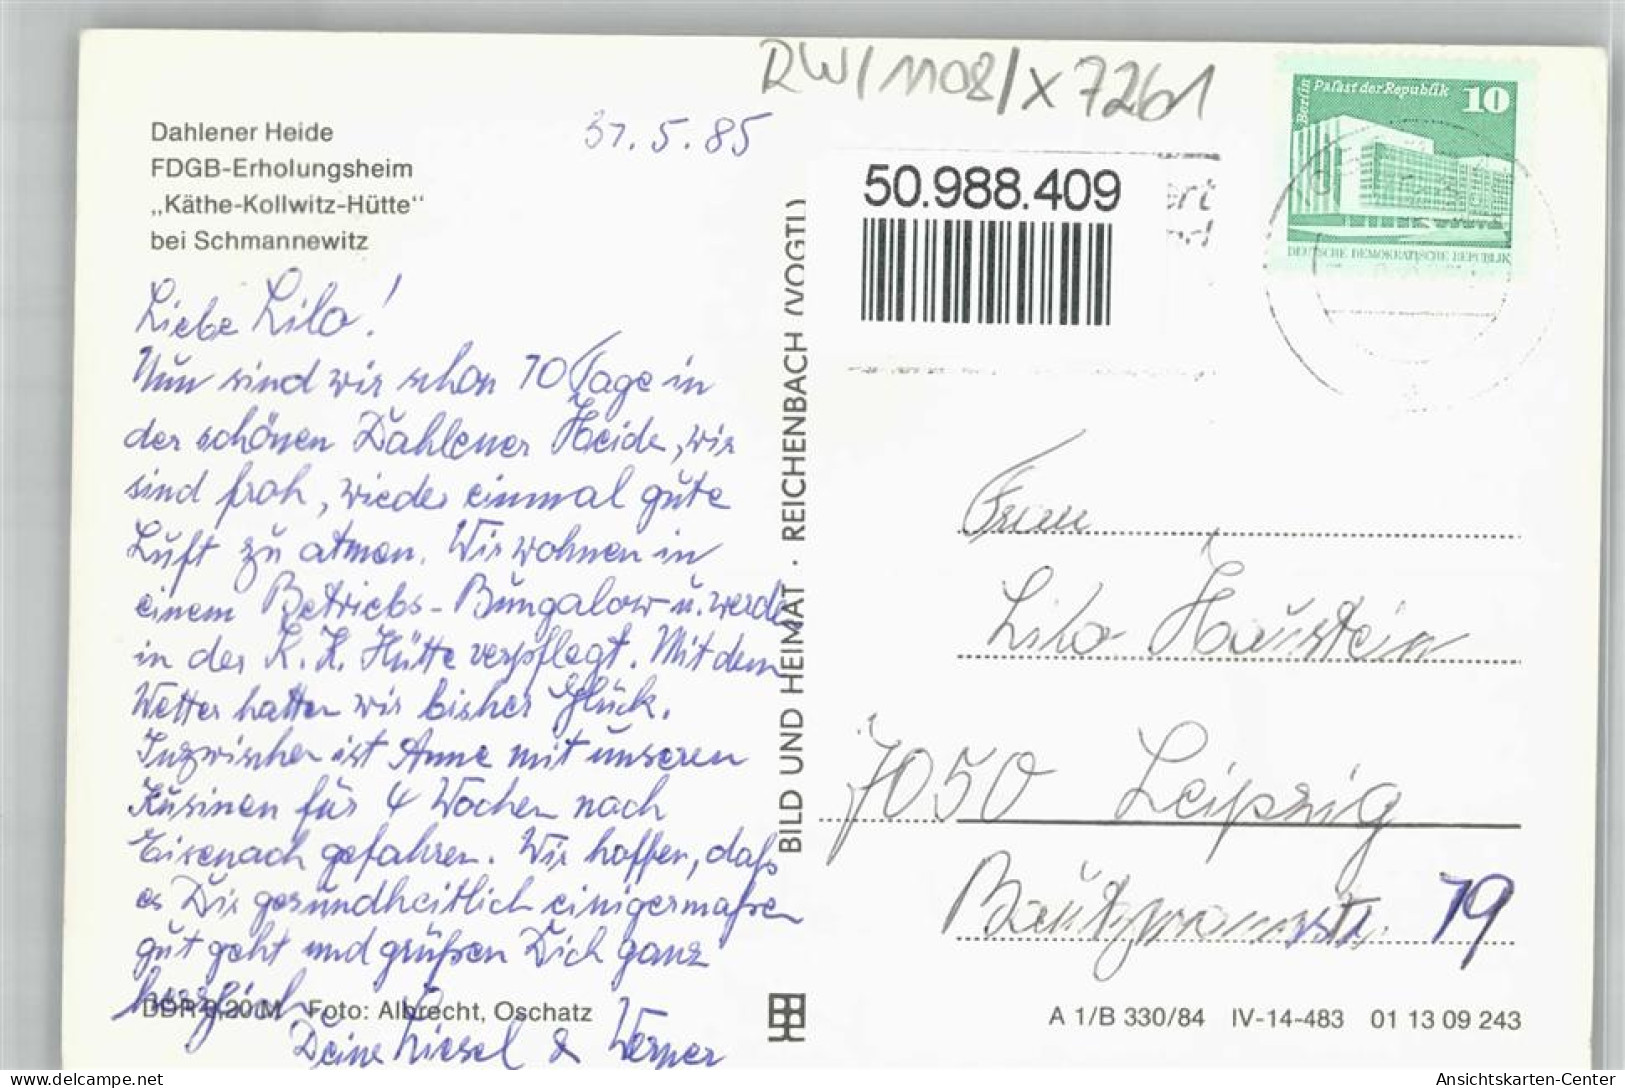 RW/1108/X7261
Dahlener Heide
FDGB-Erholungsheim
„Käthe-Kollwitz-Hütte"
bei Schmannewitz
31.5.85
Liebe Lilo!
Nun sind wir schon 10 Tage in
der schönen Dahlener Heide, wir
sind froh, wieder einmal gute
Luft zu atmen. Wir wohnen in
einem Betriebs-Bungalow u. werden
in der K. K. Hütte verpflegt. Mit dem
Wetter hatten wir bisher Glück.
Inzwischen ist Anne mit unseren
Kusinen für 4 Wochen nach
Eisenach gefahren. Wir hoffen, daß
es Dir gesundheitlich einigermaßen
gut geht und grüßen Dich ganz
herzlich
Deine Liesel & Werner
DDR 0,20 M Foto: Albrecht, Oschatz
BILD UND HEIMAT · REICHENBACH (VOGTL)
50.988.409
Berlin
Palast der Republik 10
DEUTSCHE DEMOKRATISCHE REPUBLIK
Frau
Lilo Haustein
7050 Leipzig
str. 79
A 1/B 330/84 IV-14-483 01 13 09 243
https://www.delcampe.net
Ansichtskarten-Center